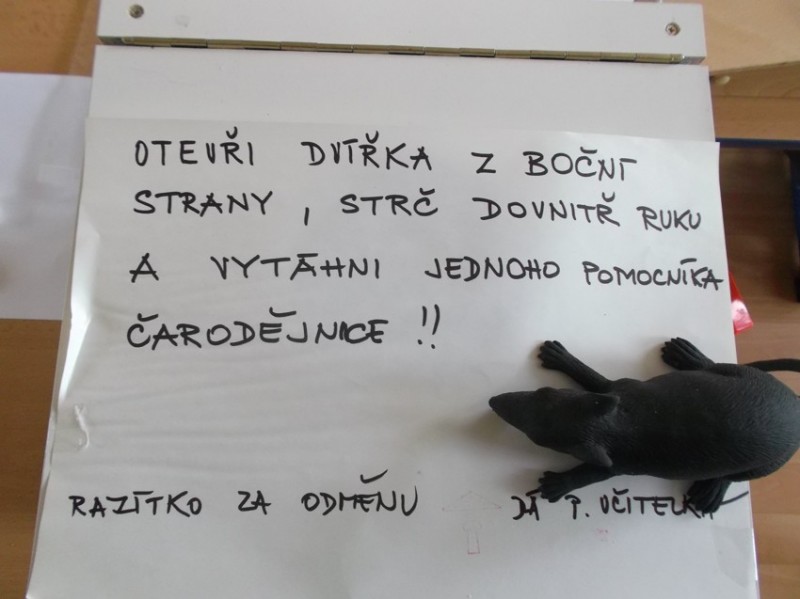 OTEVŘI DVÍŘKA Z BOČNÍ
STRANY, STRČ DOVNITŘ RUKU
A VYTÁHNI JEDNOHO POMOCNÍKA
ČARODĚJNICE!!
RAZÍTKO ZA ODMĚNU DÁ P. UČITELKA